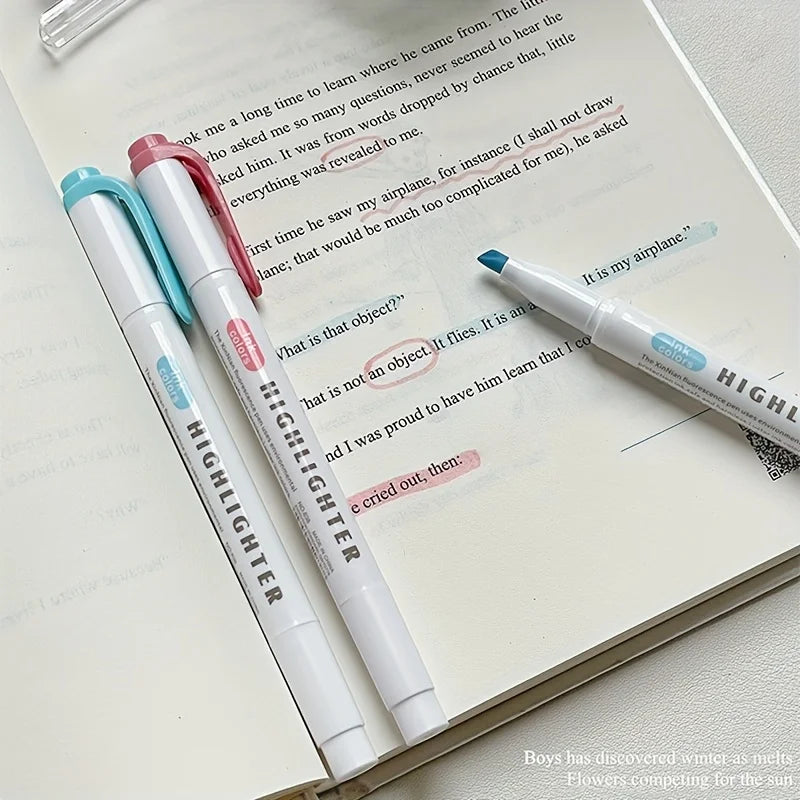 ook me a long time to learn where he came from. The little
who asked me so many questions, never seemed to hear the
ked him. It was from words dropped by chance that, little
everything was revealed to me.
first time he saw my airplane, for instance (I shall not draw
plane; that would be much too complicated for me), he asked
What is that object?"
That is not an object. It flies. It is an a It is my airplane."
nd I was proud to have him learn that I co
e cried out, then:
ink colors
HIGHLIGHTER
ink colors
The XinNian fluorescence pen uses environmental
NO.608 MADE IN CHINA
HIGHLIGHTER
ink colors
The XinNian fluorescence pen uses environment
HIGHL
Boys has discovered winter as melts
Flowers competing for the sun